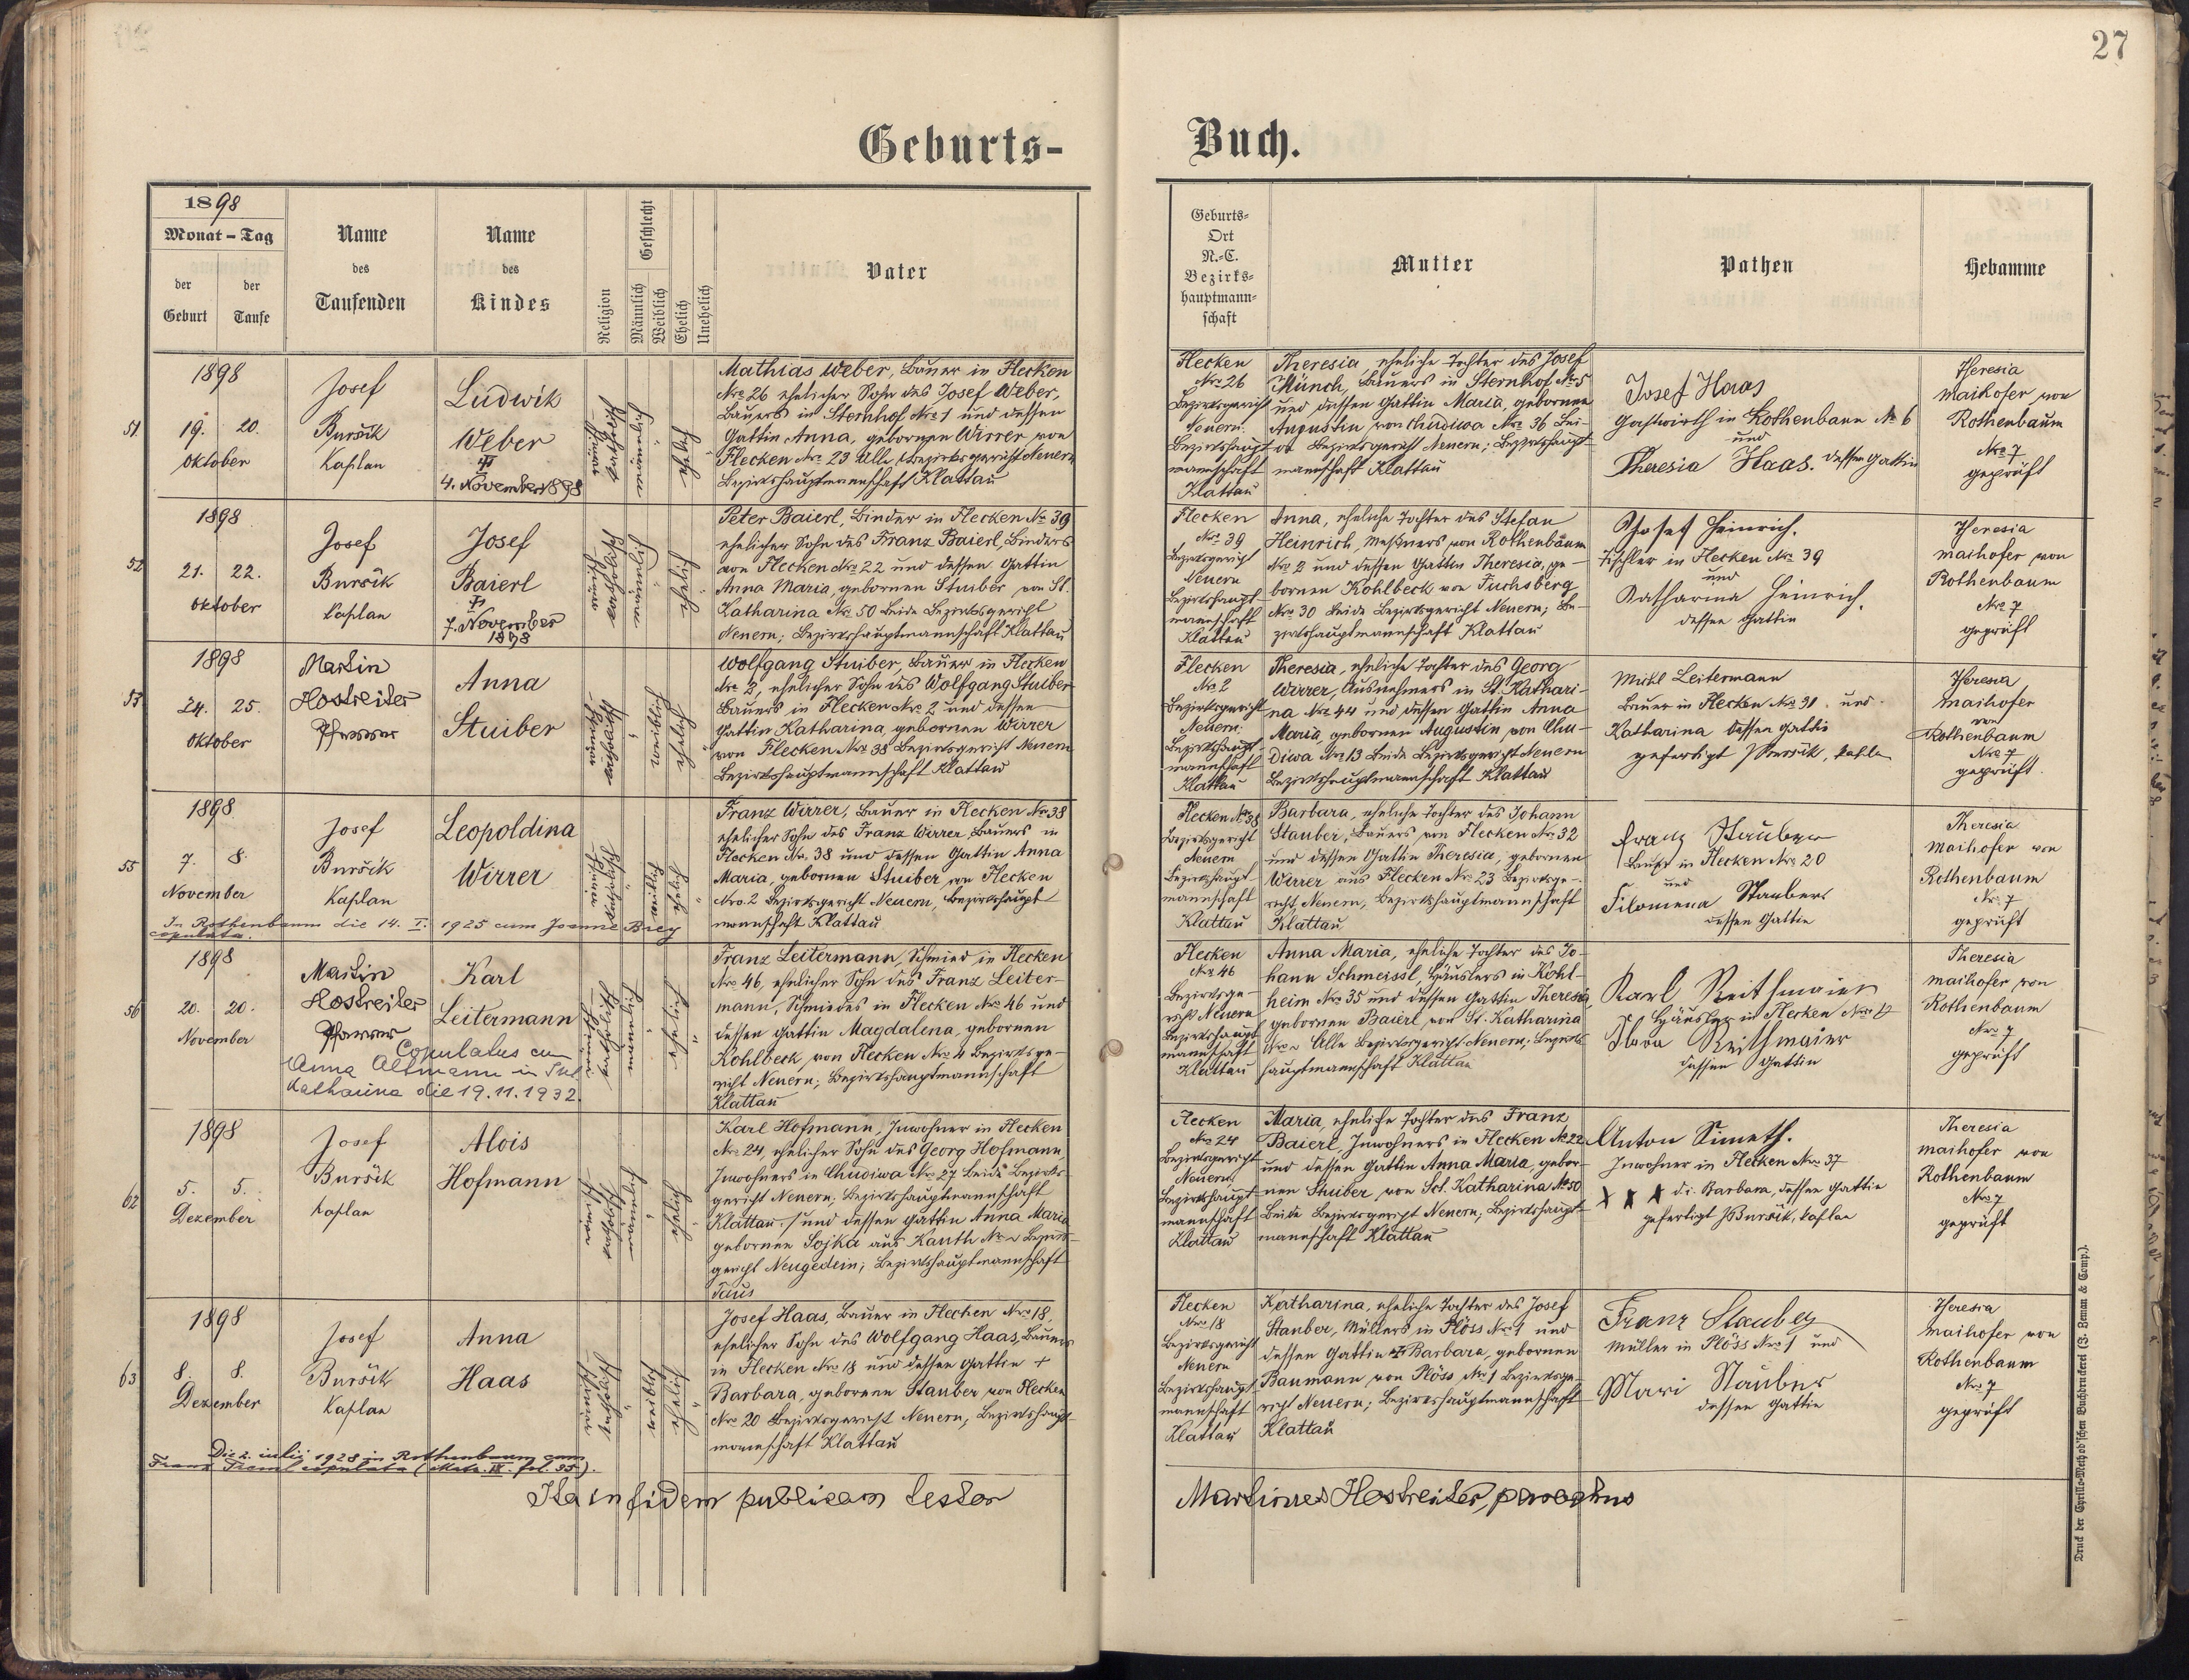 27
Geburts-
Buch.
1898
Monat – Tag
der Geburt
der Taufe
Name
des
Taufenden
Name
des
Kindes
Religion
Geschlecht
Männlich
Weiblich
Ehelich
Unehelich
Vater
Geburts-
Ort
N.-C.
Bezirks-
hauptmann-
schaft
Mutter
Pathen
Hebamme
51.
1898
19. 20.
Oktober
Josef
Buršík
Kaplan
Ludwik
Weber
4. November 1898
männlich
ehelich
Mathias Weber, Bauer in Flecken
Nro 26 ehelicher Sohn des Josef Weber,
Bauers in Sternhof Nro 1 und dessen
Gattin Anna, gebornen Wirrer von
Flecken Nro 23 Alle Bezirksgericht Neuern
Bezirkshauptmannschaft Klattau
Flecken
Nro 26
Bezirksgericht
Neuern.
Bezirkshaupt-
mannschaft
Klattau
Theresia, eheliche Tochter des Josef
Münch, Bauers in Sternhof No 5
und dessen Gattin Maria, gebornen
Augustin von Chudiwa Nro 36 Bei-
de Bezirksgericht Neuern; Bezirkshaupt-
mannschaft Klattau
Josef Haas
Gastwirth in Rothenbaum No 6
und
Theresia Haas. dessen Gattin
Theresia
Maihofer von
Rothenbaum
Nro 7
geprüft
52
1898
21. 22.
Oktober
Josef
Buršík
Kaplan
Josef
Baierl
7. November
1898
männlich
ehelich
Peter Baierl, Binder in Flecken No 39
ehelicher Sohn des Franz Baierl, Binders
von Flecken Nro 22 und dessen Gattin
Anna Maria, gebornen Stuiber von St.
Katharina No 50 Beide Bezirksgericht
Neuern; Bezirkshauptmannschaft Klattau
Flecken
Nro 39
Bezirksgericht
Neuern
Bezirkshaupt-
mannschaft
Klattau
Anna, eheliche Tochter des Stefan
Heinrich, Meßners von Rothenbaum
Nro 2 und dessen Gattin Theresia, ge-
bornen Kohlbeck von Fuchsberg
Nro 30 Beide Bezirksgericht Neuern; Be-
zirkshauptmannschaft Klattau
Josef Heinrich.
Tischler in Flecken No 39
und
Katharina Heinrich.
dessen Gattin
Theresia
Maihofer von
Rothenbaum
Nro 7
geprüft
53
1898
24. 25.
Oktober
Martin
Hostreiter
Pfarrer
Anna
Stuiber
weiblich
ehelich
Wolfgang Stuiber, Bauer in Flecken
Nro 2, ehelicher Sohn des Wolfgang Stuiber
Bauers in Flecken Nro 2 und dessen
Gattin Katharina, gebornen Wirrer
von Flecken Nro 38 Bezirksgericht Neuern
Bezirkshauptmannschaft Klattau
Flecken
Nro 2
Bezirksgericht
Neuern.
Bezirkshaupt-
mannschaft
Klattau
Theresia, eheliche Tochter des Georg
Wirrer, Ausnehmers in St. Kathari-
na Nro 44 und dessen Gattin Anna
Maria gebornen Augustin von Chu-
diwa Nro 13 Beide Bezirksgericht Neuern
Bezirkshauptmannschaft Klattau
Michl Leitermann
Bauer in Flecken No 31. und
Katharina dessen Gattin
gefertigt JBursik, Kapla
Theresia
Maihofer
von
Rothenbaum
Nro 7
geprüft.
55
1898
7. 8.
November
Josef
Buršík
Kaplan
Leopoldina
Wirrer
weiblich
ehelich
In Rothenbaum die 14. I. 1925 cum Joanne Brey
copulata.
Franz Wirrer, Bauer in Flecken No 38
ehelicher Sohn des Franz Wirrer, Bauers in
Flecken No. 38 und dessen Gattin Anna
Maria, gebornen Stuiber von Flecken
Nro. 2 Bezirksgericht Neuern, Bezirkshaupt-
mannschaft Klattau
Flecken No 38
Bezirksgericht
Neuern
Bezirkshaupt-
mannschaft
Klattau
Barbara, eheliche Tochter des Johann
Stauber, Bauers von Flecken No 32
und dessen Gattin Theresia, gebornen
Wirrer aus Flecken No 23 Bezirksge-
richt Neuern, Bezirkshauptmannschaft
Klattau
Franz Stauber
Bauer in Flecken Nro 20
und
Filomena Staubers
dessen Gattin
Theresia
Maihofer von
Rothenbaum
Nr. 7
geprüft
56
1898
20. 20.
November
Martin
Hostreiter
Pfarrer
Karl
Leitermann
männlich
ehelich
Copulatus cum
Anna Altmann in Skt
Katharina die 19.11.1932.
Franz Leitermann, Schmied in Flecken
Nro 46, ehelicher Sohn des Franz Leiter-
mann, Schmiedes in Flecken No 46 und
dessen Gattin Magdalena, gebornen
Kohlbeck, von Flecken Nro 4 Bezirksge-
richt Neuern; Bezirkshauptmannschaft
Klattau
Flecken
No 46
Bezirksge-
richt Neuern
Bezirkshaupt-
mannschaft
Klattau
Anna Maria, eheliche Tochter des Jo-
hann Schmeissl, Häuslers in Kohl-
heim No 35 und dessen Gattin Theresia,
gebornen Baierl von St. Katharina
Alle Bezirksgericht Neuern; Bezirks
hauptmannschaft Klattau
Karl Reithmaier
Häusler in Flecken Nro
Reithmaier
dessen Gattin
Theresia
Maihofer von
Rothenbaum
Nro 7
geprüft
62
1898
5. 5.
Dezember
Josef
Buršík
Kaplan
Alois
Hofmann
männlich
ehelich
Karl Hofmann, Inwohner in Flecken
Nro 24, ehelicher Sohn des Georg Hofmann,
Inwohners in Chudiwa No 27 Beide Bezirks-
gericht Neuern; Bezirkshauptmannschaft
Klattau / und dessen Gattin Anna Maria
gebornen Sojka aus Kauth Bezirks-
gericht Neugedein; Bezirkshauptmannschaft
Taus
Flecken
Nro 24
Bezirksgericht
Neuern
Bezirkshaupt-
mannschaft
Klattau
Maria, eheliche Tochter des Franz
Baierl, Inwohners in Flecken No 22
und dessen Gattin Anna Maria, gebor-
nen Stuiber, von Sct. Katharina No 50
Beide Bezirksgericht Neuern; Bezirkshaupt-
mannschaft Klattau
Anton Simeth.
Inwohner in Flecken Nro 37
X X X d.i. Barbara, dessen Gattin
gefertigt JBuršík, Kaplan
Theresia
Maihofer von
Rothenbaum
Nro 7
geprüft
63
1898
8. 8.
Dezember
Josef
Buršík
Kaplan
Anna
Haas
weiblich
ehelich
Die 2. iulii 1928 in Rothenbaum cum
Franz copulata (Matr. IV. fol. 35.).
Josef Haas, Bauer in Flecken Nro 18,
ehelicher Sohn des Wolfgang Haas, Bauers
in Flecken Nro 18 und dessen Gattin +
Barbara, gebornen Stauber von Flecken
Nro 20 Bezirksgericht Neuern, Bezirkshaupt-
mannschaft Klattau
Flecken
Nro 18
Bezirksgericht
Neuern
Bezirkshaupt-
mannschaft
Klattau
Katharina, eheliche Tochter des Josef
Stauber, Müllers in Plöss No 1 und
dessen Gattin + Barbara, gebornen
Baumann von Plöss No 1 Bezirksge-
richt Neuern; Bezirkshauptmannschaft
Klattau
Franz Stauber
Müller in Plöss Nro 1 und
Mari Stauber
dessen Gattin
Theresia
Maihofer von
Rothenbaum
Nro 7
geprüft
Ita in fidem publicam testor
Martinus Hostreiter, parochus
Druck der Cyrillo-Method'schen Buchdruckerei (J. Zeman & Comp.).